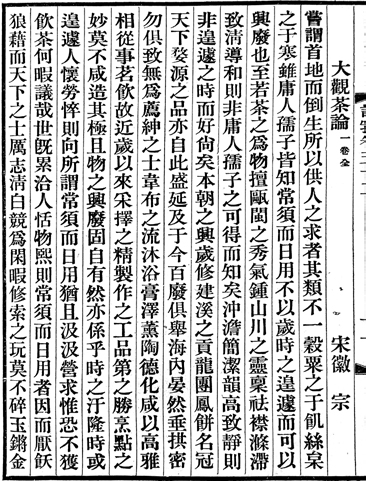 大觀茶論 一卷全 宋徽宗
嘗謂首地而倒生所以供人之求者其類不一穀粟之于飢絲枲
之于寒雖庸人孺子皆知常須而日用不以歲時之遑遽而可以
興廢也至若茶之為物擅甌閩之秀氣鍾山川之靈稟祛襟滌滯
致清導和則非庸人孺子之可得而知矣沖澹簡潔韻高致靜則
非遑遽之時而好尚矣本朝之興歲修建溪之貢龍團鳳餅名冠
天下婺源之品亦自此盛延及于今百廢俱舉海內晏然垂拱密
勿俱致無為薦紳之士韋布之流沐浴膏澤薰陶德化咸以高雅
相從事茗飲故近歲以來采擇之精製作之工品第之勝烹點之
妙莫不咸造其極且物之興廢固自有然亦係乎時之汙隆時或
遑遽人懷勞悴則向所謂常須而日用猶且汲汲營求惟恐不獲
飲茶何暇議哉世既累洽人恬物熙則常須而日用者因而厭飫
狼藉而天下之士厲志清白競為閑暇修索之玩莫不碎玉鏘金